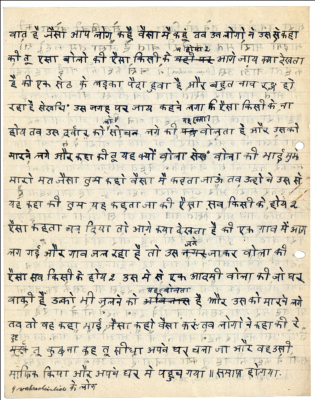 बात है जैसा आप लोग कहैं वैसा मैं कहूं तब उन लोगों ने उससे कहा
होय २
की तू एसा बोलो की ऐसा किसी के आगे जाय क्या देखता
है की एक सेठ के लड़का पैदा हुवा है और बहुत नाच रंग हो
रहा है उस जगह पर जाय कहने लगा की ऐसा किसी के ना
होय तब उस को सोचने लगे की बोलता है और उसको
मारने लगे और कहा की तू यह क्यों बोला बोला की भाई मुझ
मारो मत जैसा तुम कहो वैसा मैं कहता जाऊं तब उन्होंने उस से
यह कहा की तुम यह कहता जा की ऐसा सब किसी के होय २
ऐसा कहता चल दिया तो आगे क्या देखता है की एक गांव में आग
लग गई और गांव जल रहा है तो उस जगे जाकर बोला की
ऐसा सब किसी के होय २ उस में से एक आदमी बोला की जो घर
यह बोलता
बाकी हैं उनको भी जलने को है और उसको मारने लगे
तब तो यह कहा भाई जैसा कहो वैसा करूं तब लोगों ने कहा की रे
मूर्ख तू कुछ ना कह तू सीधा अपने घर चला जा और वह उसी
माफिक किया और अपने घर में पहुंच गया ॥ समाप्त हो गया.
के लोग